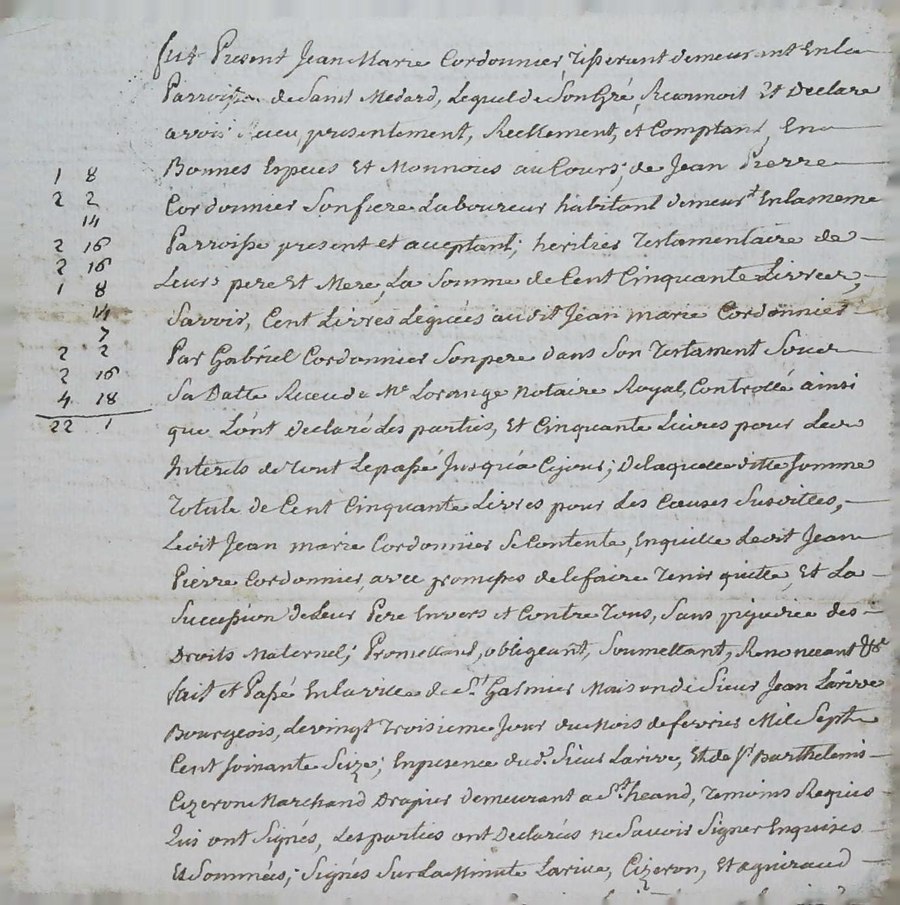 fut Present Jean Marie Cordonnier Tisserent demeurant Enla
Parroisse de Saint Medard, Lequel de Son Gré, Reconnoit Et Declare
avoir Receu presentement, Reellement, et Comptant, En
Bonnes Especes Et Monnoies au Cours; de Jean Pierre
Cordonnier Son frere Laboureur habitant demeurt Enlameme
Parroisse present et acceptant; heritier Testamentaire de
Leurs pere Et Mere, La Somme de Cent Cinquante Livres,
Savoir, Cent Livres Leguées audit Jean marie Cordonnier
Par Gabriel Cordonnier Sonpere dans Son Testament Sous
Sa Datte Receu de Me Lorange Notaire Royal, Controllé ainsi
que L'ont Declaré Les parties, Et Cinquante Livres pour Les
Interets de Tout Le passé Jusqu'a Cejour; de laquelle ditte somme
Totale de Cent Cinquante Livres pour Les Causes Susdittes,
Ledit Jean marie Cordonnier Se Contente, Enquitte Ledit Jean
Pierre Cordonnier, avec promesses de lefaire Tenir quitte, Et La
Succession de Leur Pere Envers et Contre Tous, Sans prejudice des
Droits Maternel; Promettant, obligeant, Soumettant, Renonceant &c
fait et Passé Enlaville de St Galmier Maison de Sieur Jean Larive
Bourgeois, Levingt Troisieme Jour du Mois de fevrier Mil Sept
Cent soixante Seize; Enpresence dud. Sieur Larive, Et de Sr Barthelemis
Cizeron Marchand Drapier demeurant a St heand, Temoins Requis
Qui ont Signés, Les parties ont Declarées ne Savoir Signer Enquises
Et Sommées; Signés Sur La Minute Larive, Cizeron, Et aguiraud
1 8
2 2
14
2 16
2 16
1 8
14
7
2 2
2 16
4 18
22 1